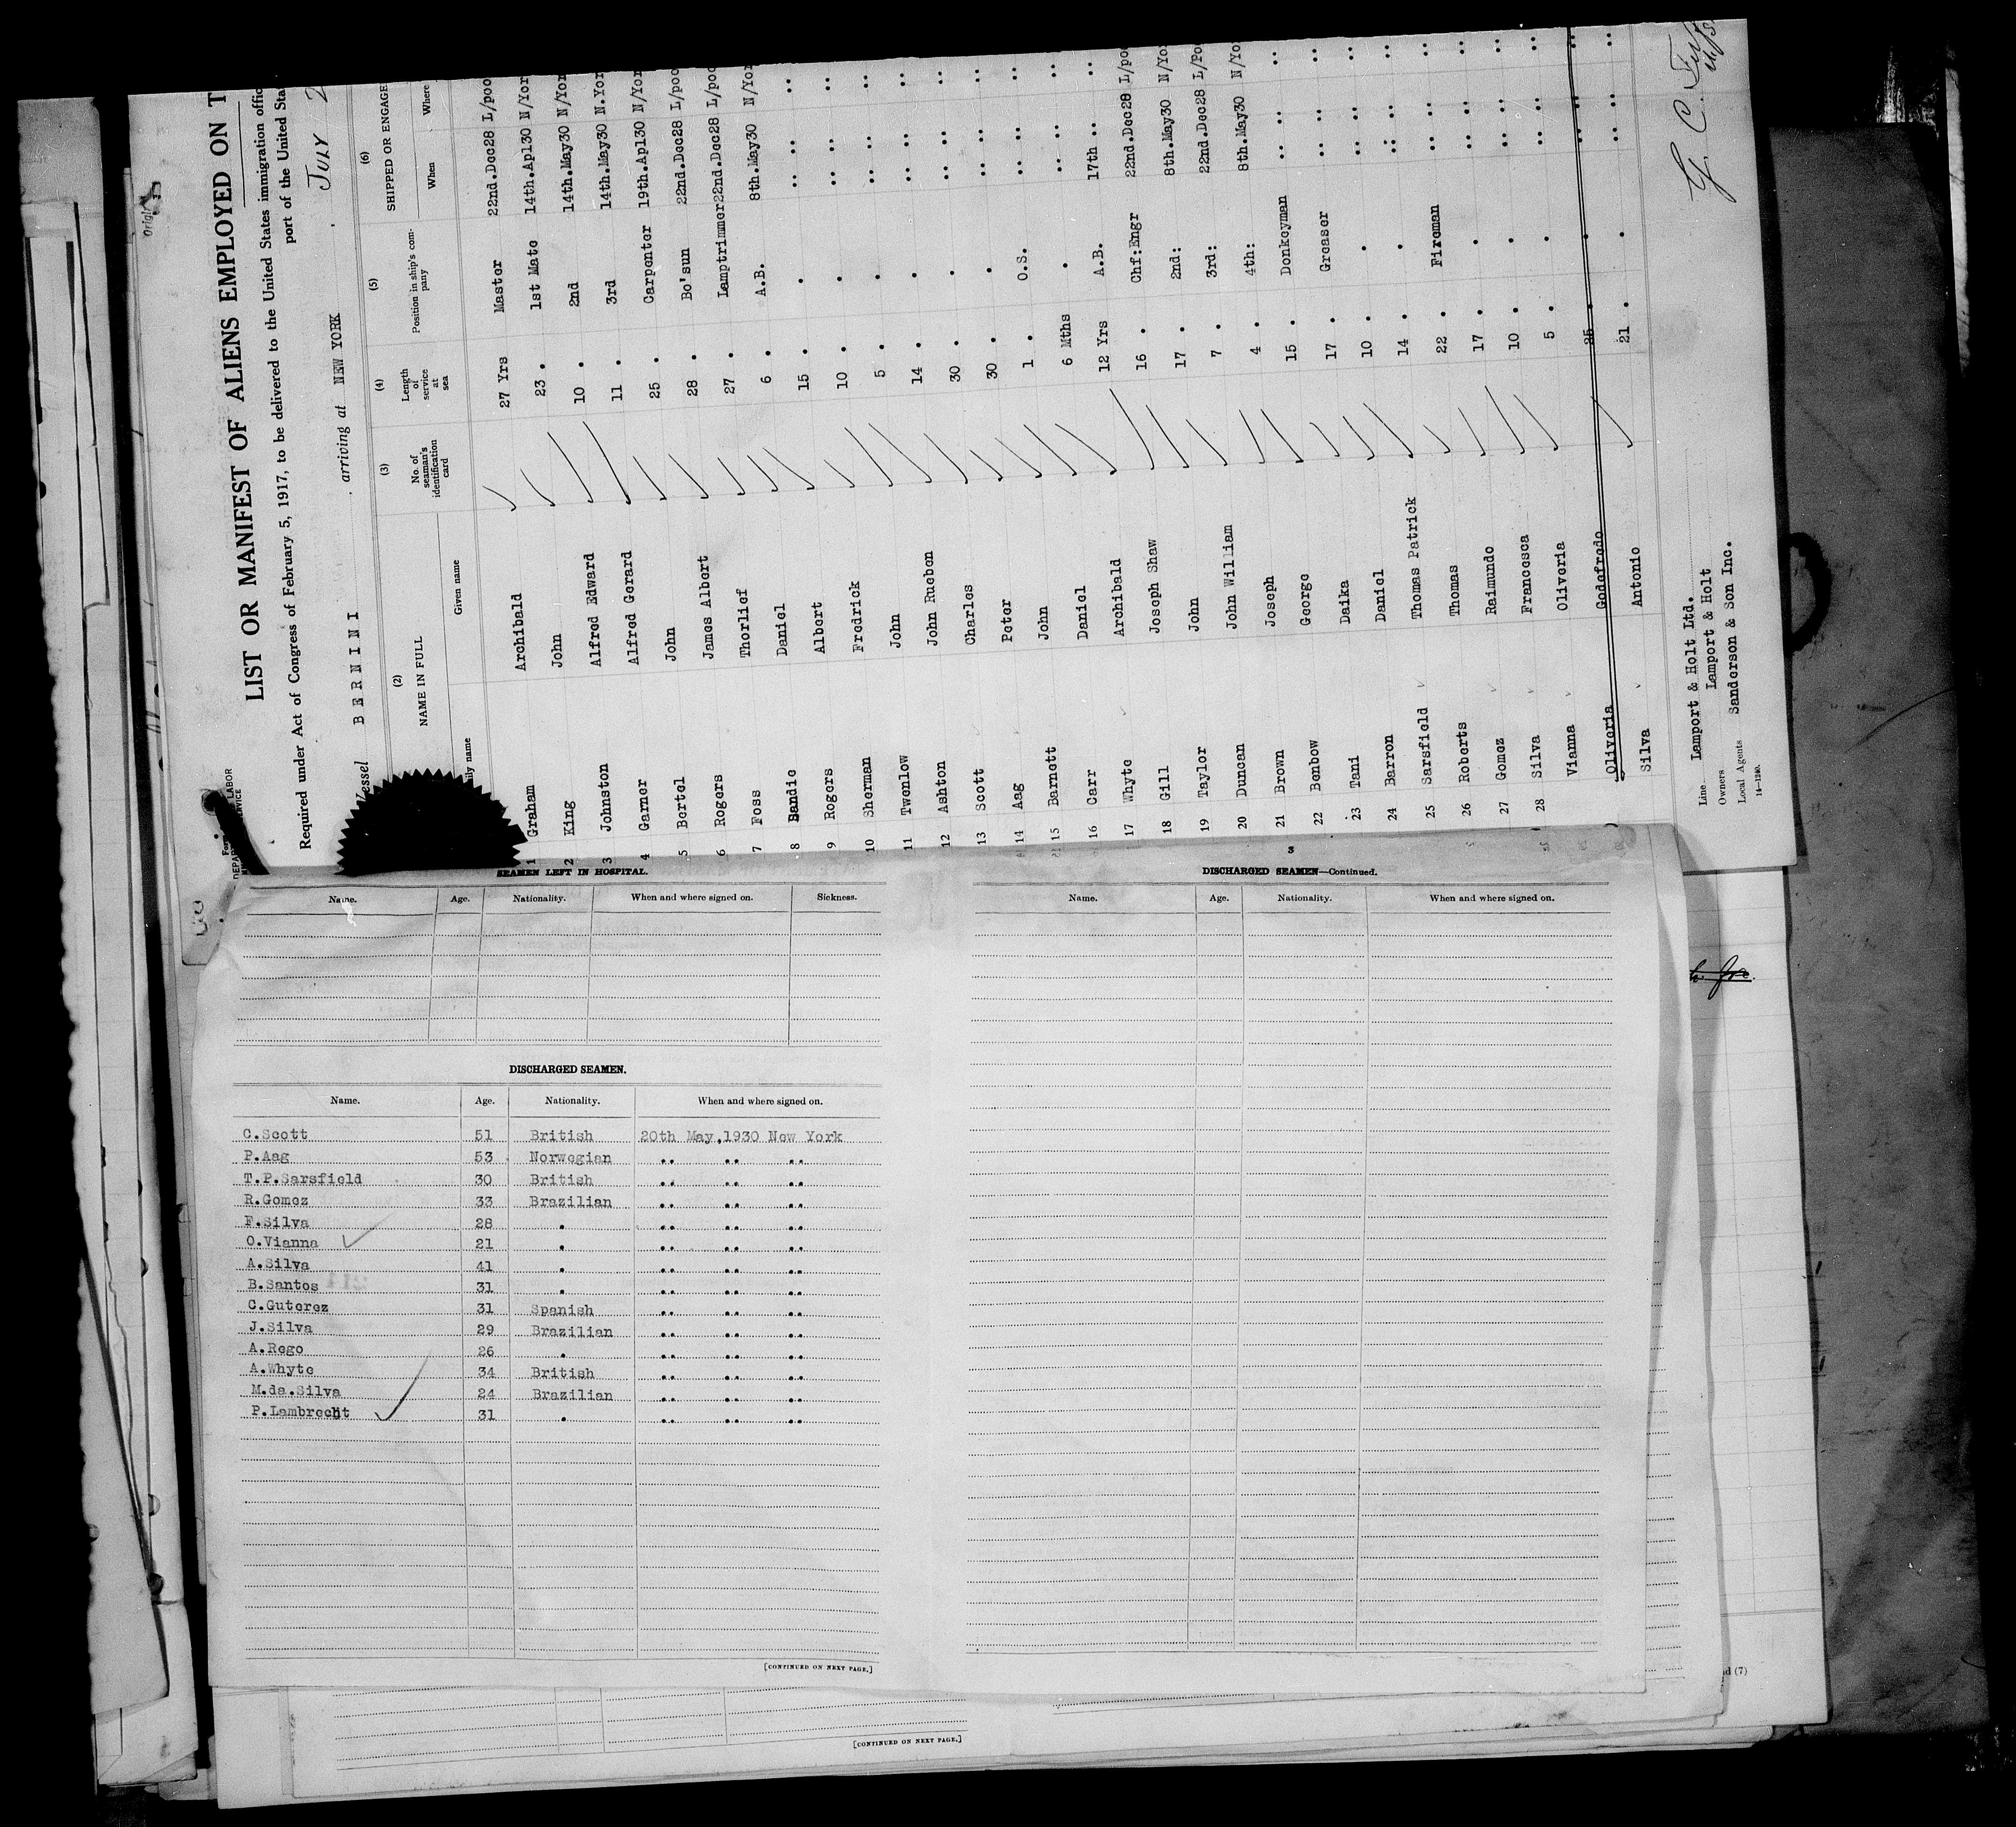 LIST OR MANIFEST OF ALIENS EMPLOYED ON T
Required under Act of Congress of February 5, 1917, to be delivered to the United States immigration offic
port of the United Stat
Vessel BERNINI arriving at NEW YORK JULY 2
(2) (3) (4) (5) (6)
NAME IN FULL No. of seaman's identification card Length of service at sea Position in ship's company SHIPPED OR ENGAGE
Given name When Where
1 Graham Archibald 27 Yrs Master 22nd.Dec28 L/poo
2 King John 23 • 1st Mate 14th.Apl30 N/Yor
3 Johnston Alfred Edward 10 • 2nd 14th.May30 N/Yor
4 Garner Alfred Gerard 11 • 3rd 14th.May30 N.Yor
5 Bertel John 25 • Carpenter 19th.Apl30 N/Yor
6 Rogers James Albert 28 • Bo'sun 22nd.Dec28 L/poo
7 Foss Thorlief 27 • Lamptrimmer 22nd.Dec28 L/poo
8 Bandie Daniel 6 • A.B. 8th.May30 N/Yor
9 Rogers Albert 15 • • .. .. ..
10 Sherman Fredrick 10 • • .. .. ..
11 Twenlow John 5 • • .. .. ..
12 Ashton John Rueben 14 • • .. .. ..
13 Scott Charles 30 • • .. .. ..
14 Aag Peter 30 • • .. .. ..
15 Barnett John 1 • O.S. .. .. ..
16 Carr Daniel 6 Mths • .. .. ..
17 Whyte Archibald 12 Yrs A.B. 17th .. ..
18 Gill Joseph Shaw 16 • Chf:Engr 22nd.Dec28 L/poo
19 Taylor John 17 • 2nd: 8th.May30 N/Yo
20 Duncan John William 7 • 3rd: 22nd.Dec28 L/Po
21 Brown Joseph 4 • 4th: 8th.May30 N/Yo
22 Benbow George 15 • Donkeyman .. .. ..
23 Tani Daika 17 • Greaser .. .. ..
24 Barron Daniel 10 • • .. .. ..
25 Sarsfield Thomas Patrick 14 • • .. .. ..
26 Roberts Thomas 22 • Fireman .. .. ..
27 Gomez Raimundo 17 • • .. .. ..
28 Silva Francesca 10 • • .. .. ..
Vianna Oliveria 5 • • .. .. ..
Oliveria Godefredo 25 • • .. .. ..
Silva Antonio 21 • • .. .. ..
Line Lamport & Holt Ltd.
Owners Lamport & Holt
Local Agents Sanderson & Son Inc.
14—1280.
SEAMEN LEFT IN HOSPITAL.
Name. Age. Nationality. When and where signed on. Sickness.
DISCHARGED SEAMEN.
Name. Age. Nationality. When and where signed on.
C.Scott 51 British 20th May,1930 New York
P.Aag 53 Norwegian .. .. ..
T.P.Sarsfield 30 British .. .. ..
R.Gomez 33 Brazilian .. .. ..
F.Silva 28 • .. .. ..
O.Vianna 21 • .. .. ..
A.Silva 41 • .. .. ..
B.Santos 31 • .. .. ..
C.Guterez 31 Spanish .. .. ..
J.Silva 29 Brazilian .. .. ..
A.Rego 26 • .. .. ..
A.Whyte 34 British .. .. ..
M.da.Silva 24 Brazilian .. .. ..
P.Lambrecht 31 • .. .. ..
[CONTINUED ON NEXT PAGE.]
3
DISCHARGED SEAMEN—Continued.
Name. Age. Nationality. When and where signed on.
[CONTINUED ON NEXT PAGE.]